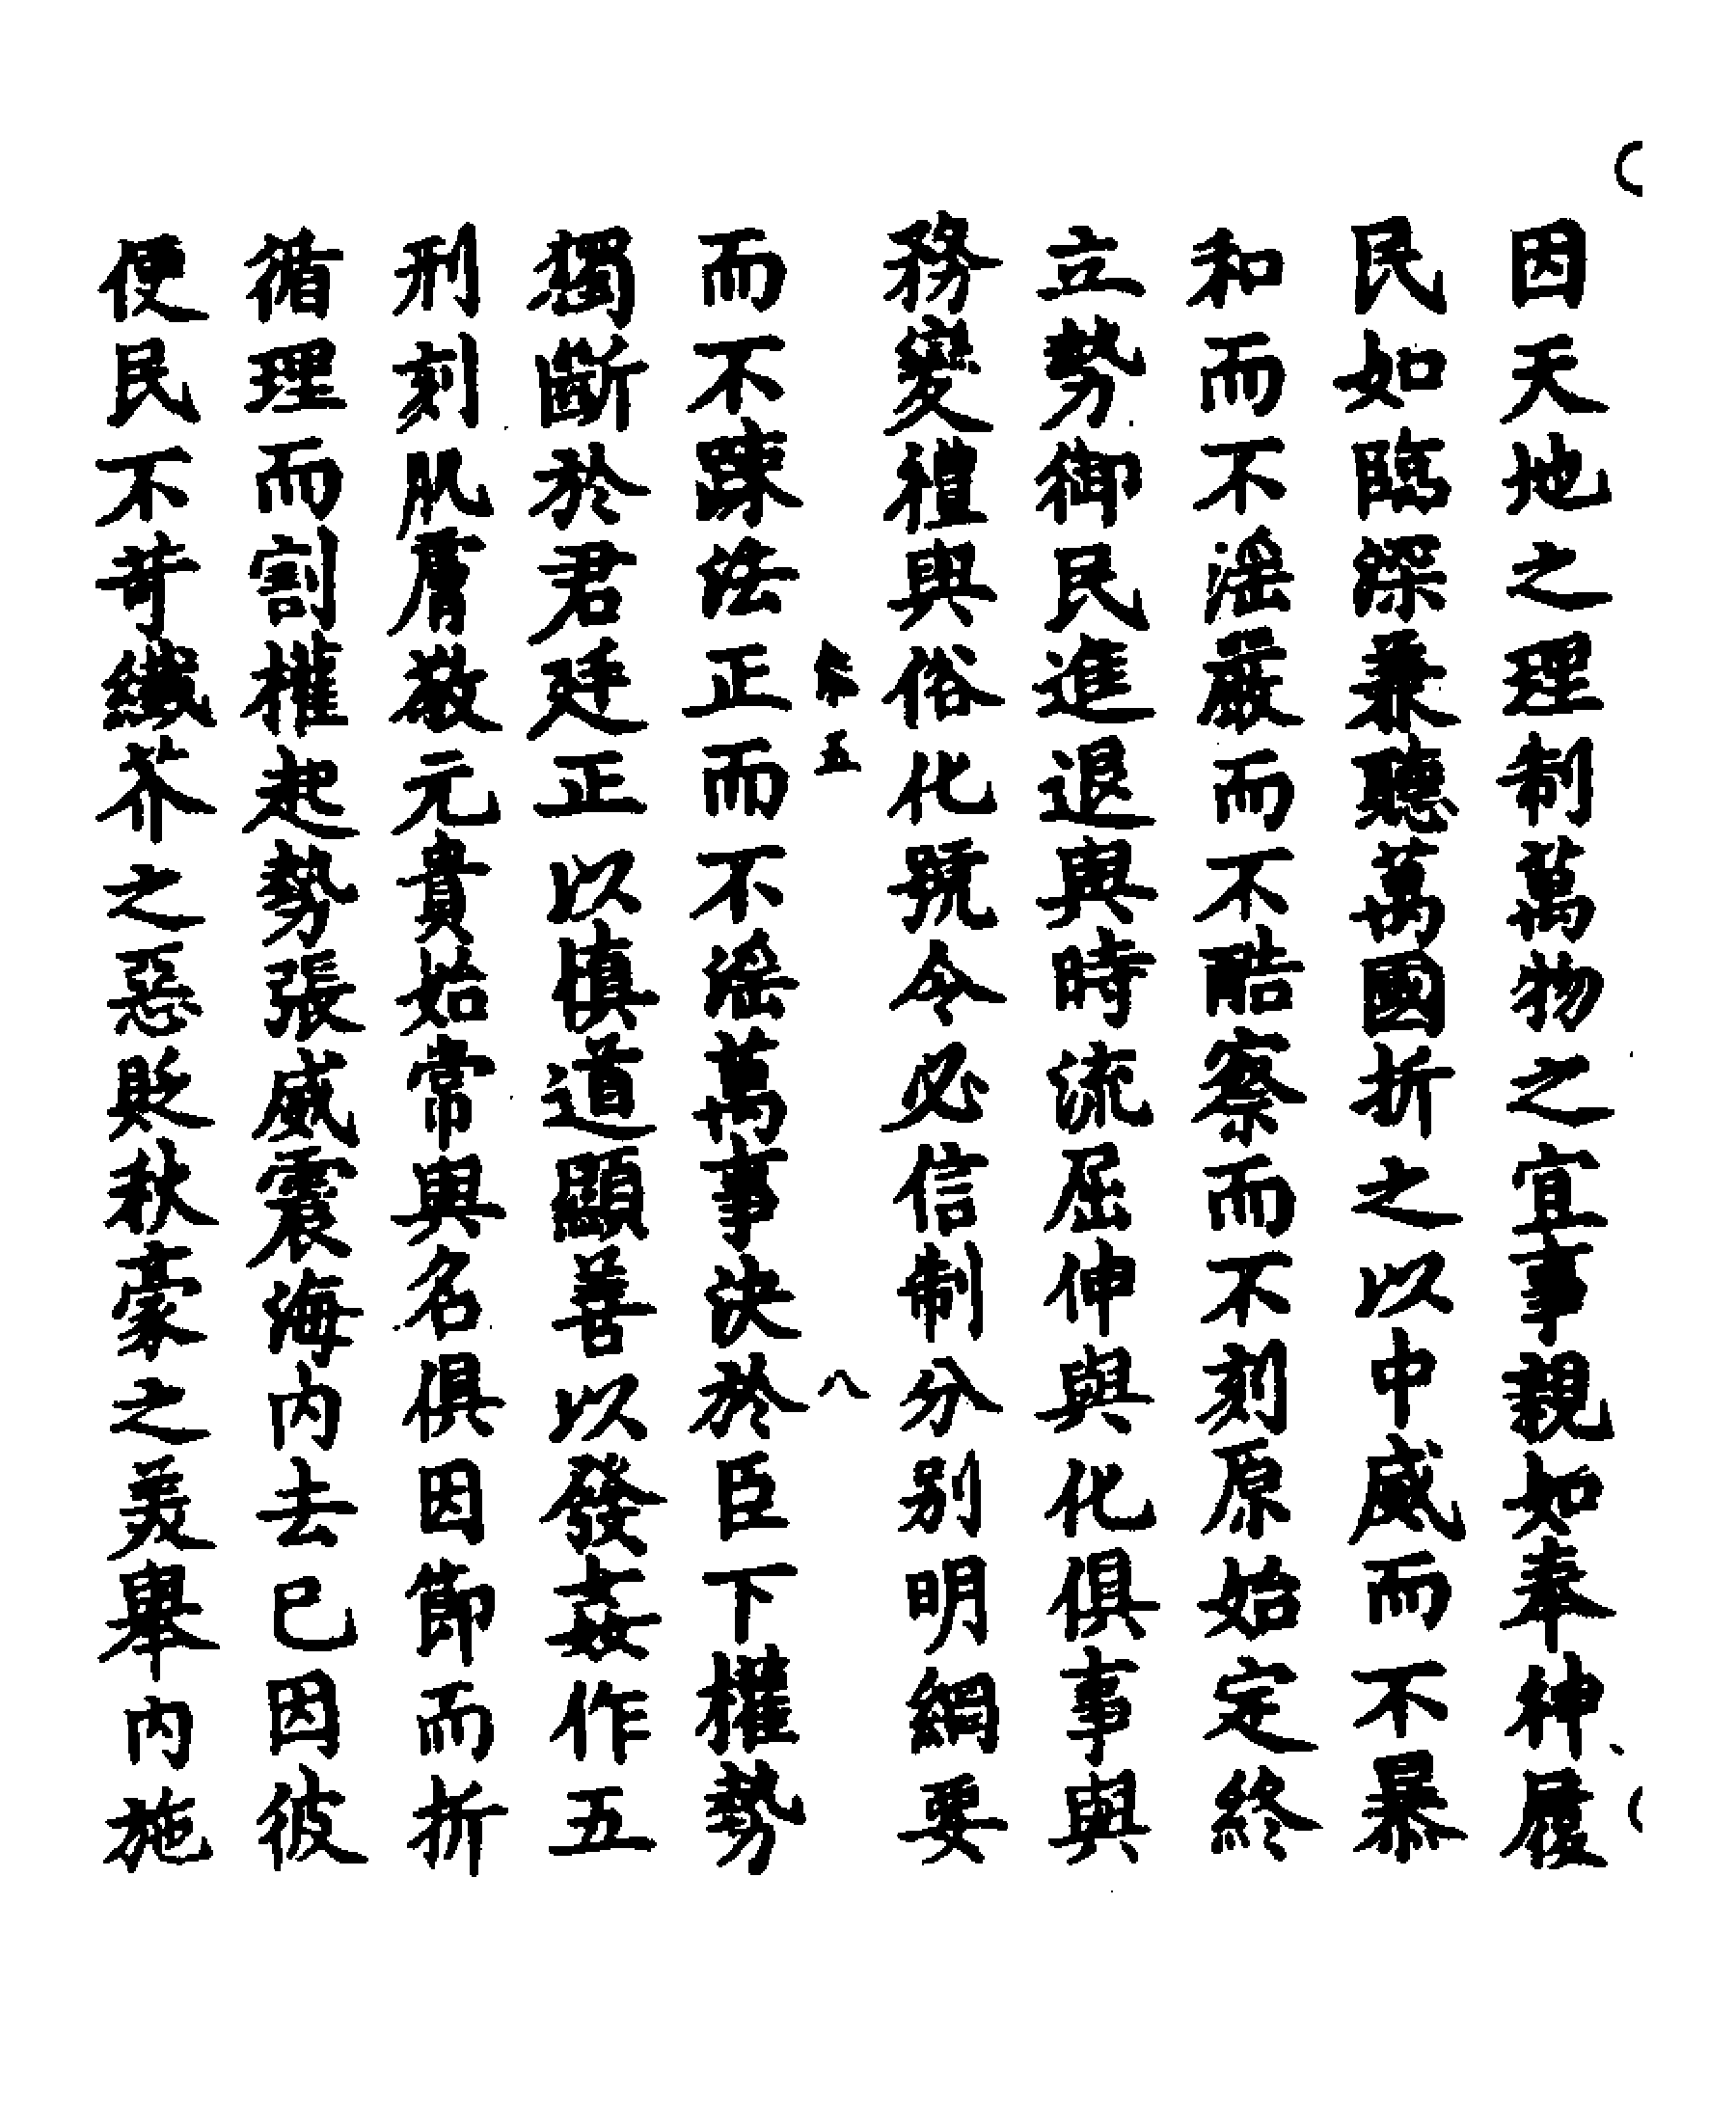 因天地之理制萬物之宜事親如奉神履
民如臨深兼聽萬國折之以中威而不暴
和而不淫嚴而不酷察而不刻原始定終
立勢御民進退與時流屈伸與化俱事與
務變禮與俗化號令必信制分別明網要
卷五 八
而不踈法正而不淫萬事決於臣下權勢
獨斷於君廷正以慎道顯善以發姦作五
刑刻肌膚敬元貴始常與名俱因節而折
循理而割權起勢張威震海內去已因彼
便民不苛纎芥之惡貶秋豪之美舉內施